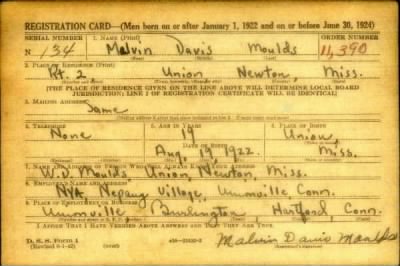 REGISTRATION CARD—(Men born on or after January 1, 1922 and on or before June 30, 1924)
SERIAL NUMBER 1. NAME (Print) ORDER NUMBER
N 134 Malvin Davis Moulds 11,390
(First) (Middle) (Last)
2. PLACE OF RESIDENCE (Print)
Rt. 2, Union Newton, Miss.
[THE PLACE OF RESIDENCE GIVEN ON THE LINE ABOVE WILL DETERMINE LOCAL BOARD
JURISDICTION; LINE 2 OF REGISTRATION CERTIFICATE WILL BE IDENTICAL]
3. MAILING ADDRESS
Same
4. TELEPHONE 5. AGE IN YEARS 6. PLACE OF BIRTH
None 19 Union,
DATE OF BIRTH
Aug. 19, 1922. Miss.
7. NAME AND ADDRESS OF PERSON WHO WILL ALWAYS KNOW YOUR ADDRESS
Moulds Union, Newton, Miss.
8. EMPLOYER'S NAME AND ADDRESS
NYA, Nepaug Village, Conn.
9. PLACE OF EMPLOYMENT OR BUSINESS
Burlington Hartford, Conn.
I AFFIRM THAT I HAVE VERIFIED ABOVE ANSWERS AND THAT THEY ARE TRUE.
D. S. S. FORM 1
(Revised 6-1-42) Malvin Davis Moulds